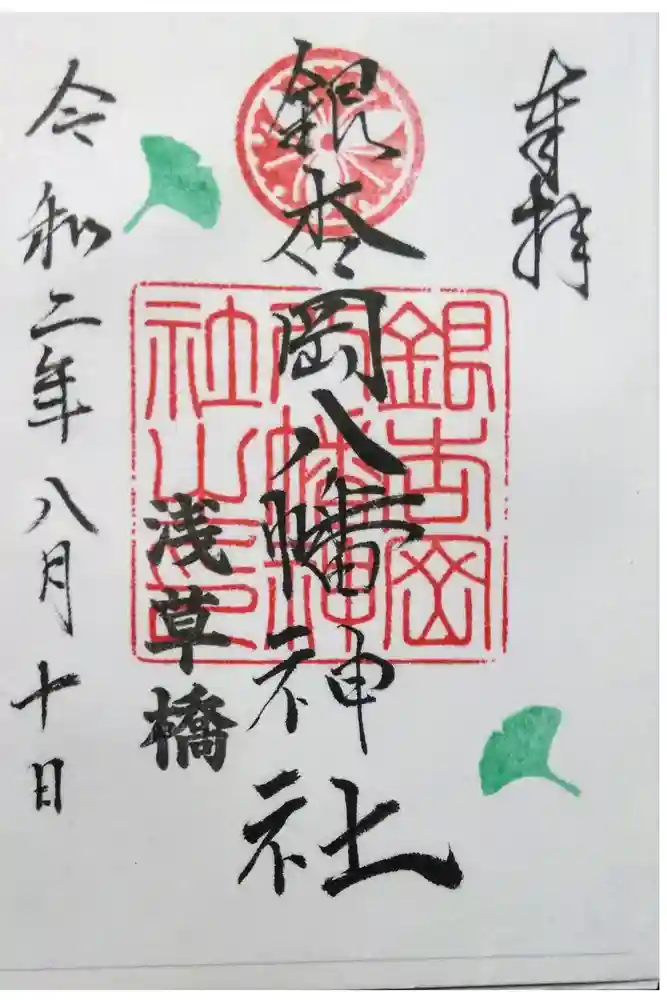 奉拝
銀杏岡八幡神社
銀杏岡
八幡神
社之印
浅草橋
令和二年八月十日